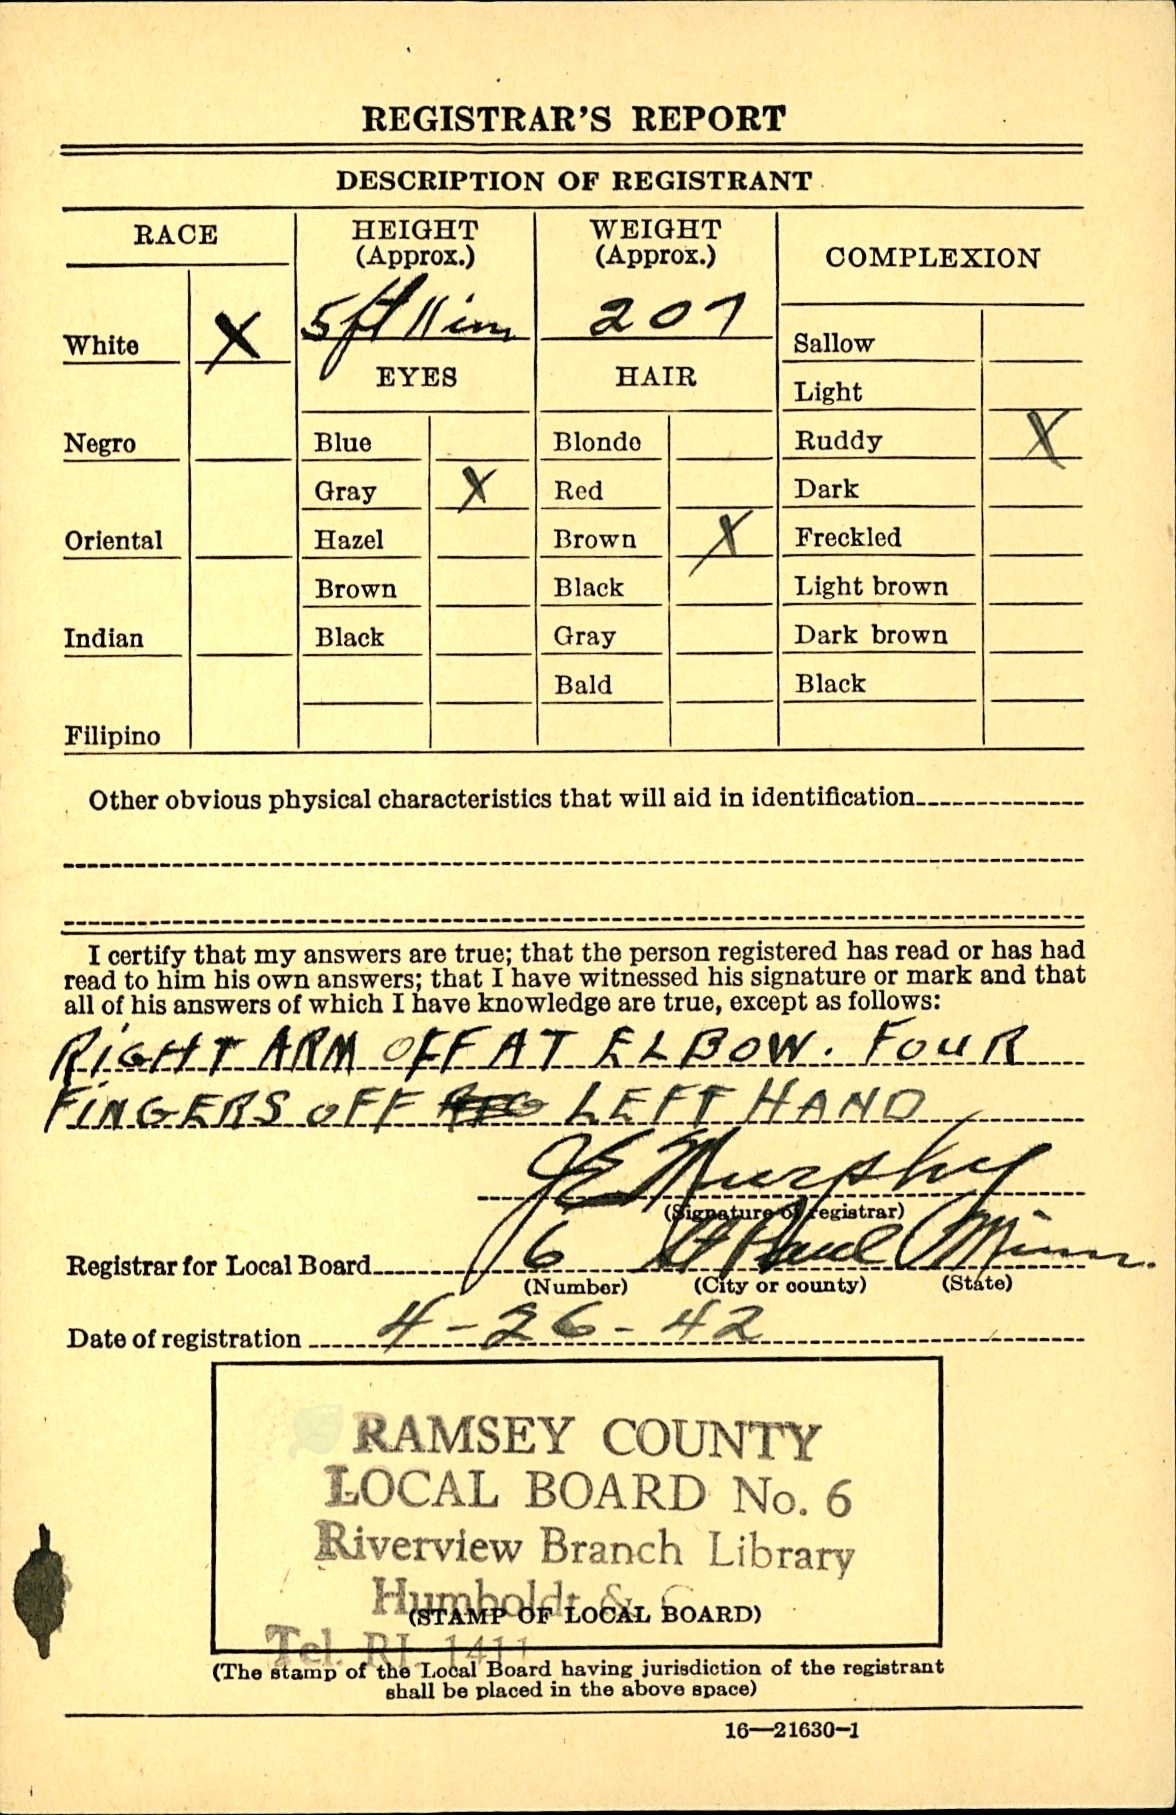 REGISTRAR'S REPORT
DESCRIPTION OF REGISTRANT
RACE
HEIGHT
(Approx.)
WEIGHT
(Approx.)
COMPLEXION
White X
5 ft 11 in
207
Sallow
EYES
HAIR
Light
Negro
Blue
Blonde
Ruddy X
Gray X
Red
Dark
Oriental
Hazel
Brown X
Freckled
Brown
Black
Light brown
Indian
Black
Gray
Dark brown
Bald
Black
Filipino
Other obvious physical characteristics that will aid in identification
I certify that my answers are true; that the person registered has read or has had
read to him his own answers; that I have witnessed his signature or mark and that
all of his answers of which I have knowledge are true, except as follows:
RIGHT ARM OFF AT ELBOW. FOUR
FINGERS OFF LEFT HAND
J E Murphy
(Signature of registrar)
Registrar for Local Board 6 St Paul Minn.
(Number) (City or county) (State)
Date of registration 4-26-42
RAMSEY COUNTY
LOCAL BOARD No. 6
Riverview Branch Library
Humboldt &
(STAMP OF LOCAL BOARD)
Tel. RI. 1411
(The stamp of the Local Board having jurisdiction of the registrant
shall be placed in the above space)
16—21630-1